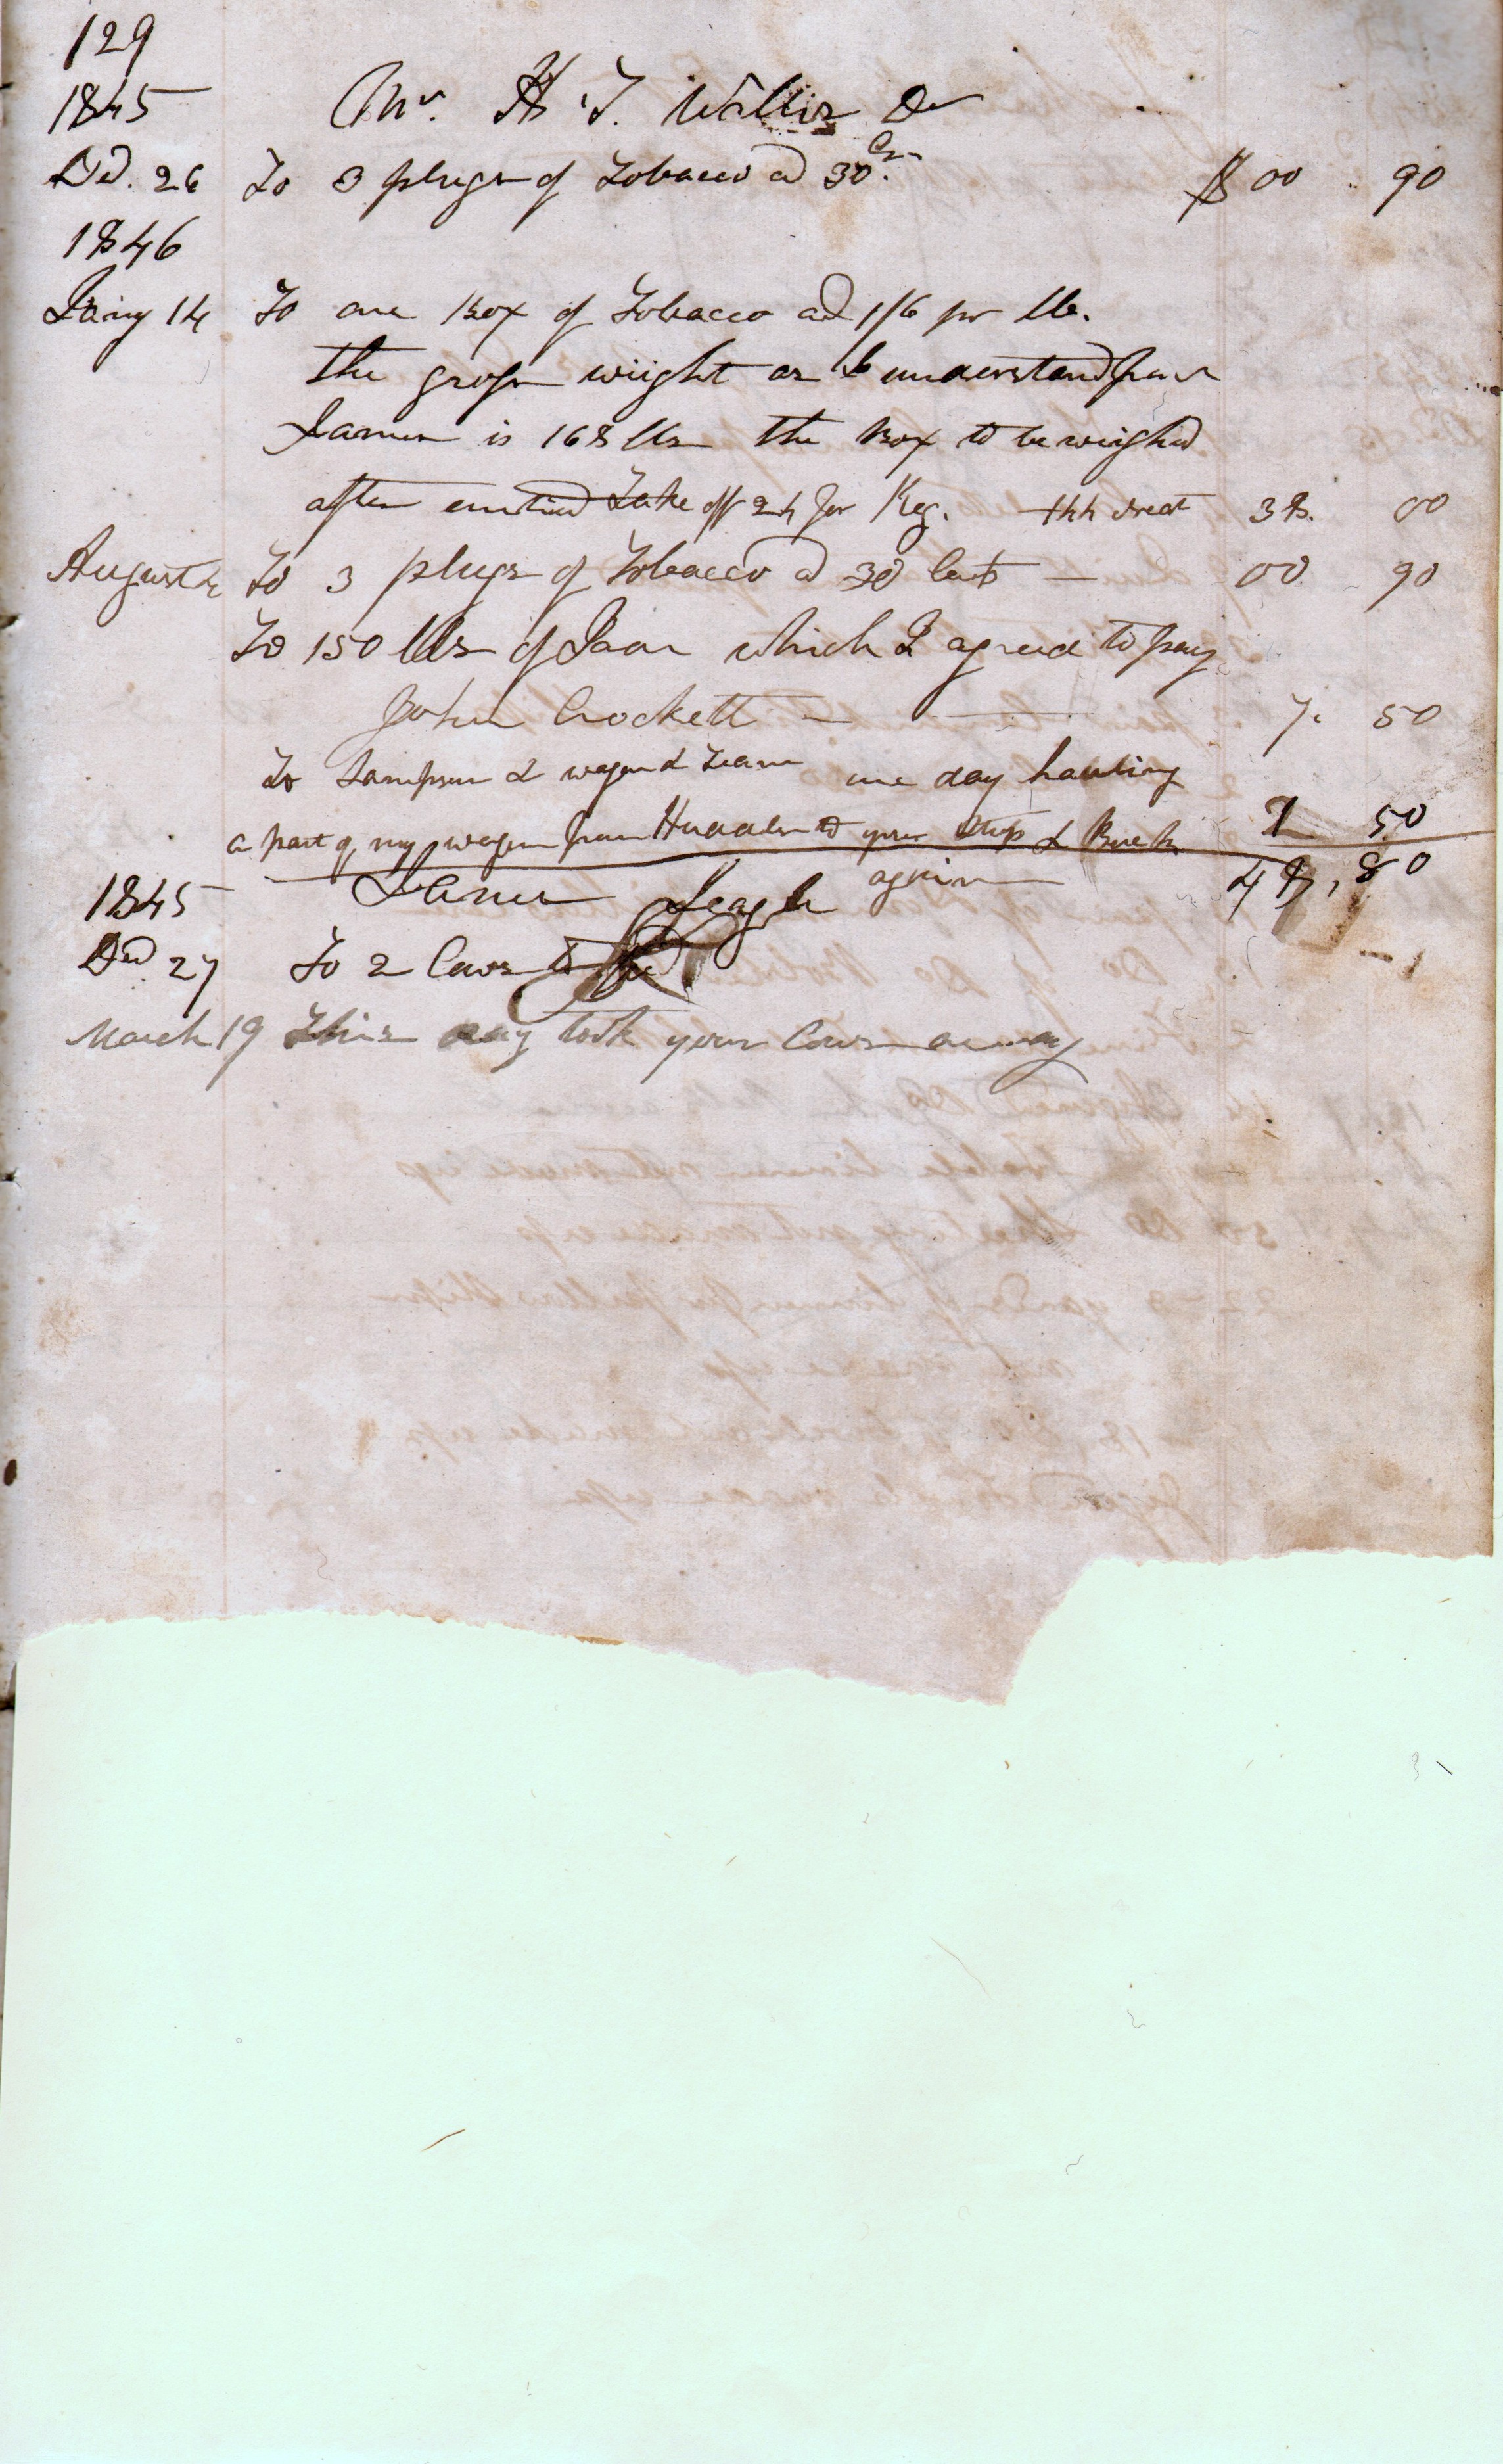 129
1845 Mr. H. T. Wallis Dr
Decr. 26 To 3 plugs of Tobacco ad 30 Cts. $ 00 90
1846
Jany 14 To one Box of Tobacco ad 1/6 pr lb.
the gross wiight as I understand from
James is 168 lbs the Box to be weighd
after emtied Take off 24 for Keg. 144 neat 38. 00
August To 3 plugs of Tobacco ad 30 Cents — 00 90
To 150 lbs of Iron which I agreed to pay
John Crockett — — 7. 50
To Sampson & wagon & Team one day hauling
a part of my wagon from Huddles to your Shop & Back 50
again 80
1845 James
Decd 27 To 2 Cows to
March 19 This day took your Cows away